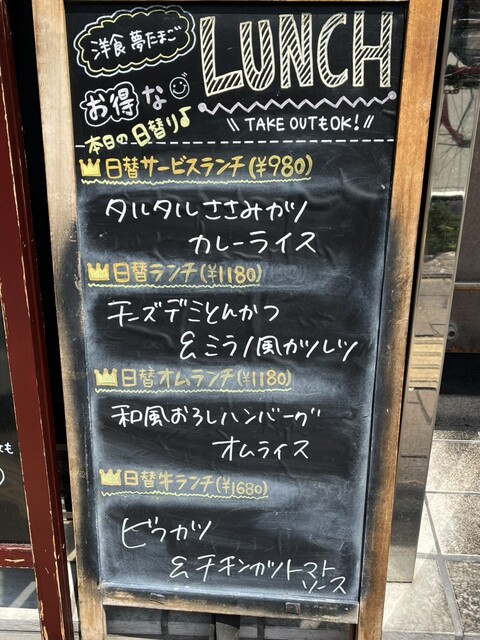 洋食 夢たまご
LUNCH
お得な
本日の日替り♪
\\ TAKE OUTもOK! //
日替サービスランチ(¥980)
タルタルささみカツ
カレーライス
日替ランチ(¥1180)
チーズデミとんかつ
&ミラノ風カツレツ
日替オムランチ(¥1180)
和風おろしハンバーグ
オムライス
日替牛ランチ(¥1680)
ビフカツ
&チキンカツトマト
ソース